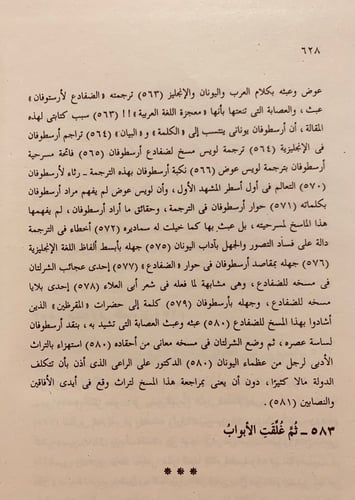 ٦٢٨
عوض وعبثه بكلام العرب واليونان والإنجليز (٥٦٣) ترجمته «الضفادع لأرستوفان»
عبث، والعصابة التى تنعتها بأنها «معجزة اللغة العربية»!! (٥٦٣) سبب كتابتى لهذه
المقالة، أن أرسطوفان يونانى ينتسب إلى «الكلمة» و«البيان» (٥٦٤) تراجم أرسطوفان
فى الإنجليزية (٥٦٤) ترجمة لويس مسخ لضفادع أرسطوفان (٥٦٥) فاتحة مسرحية
أرسطوفان بترجمة لويس عوض (٥٦٦) نكبة أرسطوفان بهذه الترجمة ــ رثاء لأرسطوفان
(٥٧٠) التعالم فى أول أسطر المشهد الأول، وأن لويس عوض لم يفهم مراد أرسطوفان
بكلماته (٥٧١) حوار أرسطوفان فى الترجمة، وحقائق ما أراد أرسطوفان، لم يفهمها
هذا الماسخ لمسرحيته، بل عبث بها كما خيلت له سماديره (٥٧٢) أخطاء فى الترجمة
دالة على فساد التصور والجهل بآداب اليونان (٥٧٥) جهله بأبسط ألفاظ اللغة الإنجليزية
(٥٧٦) جهله بمقاصد أرسطوفان فى حوار «الضفادع» (٥٧٧) إحدى عجائب الشرلتان
فى مسخه للضفادع، وهى مشابهة لما فعله فى شعر أبى العلاء (٥٧٨) إحدى بلايا
مسخه للضفادع، وجهله بأرسطوفان (٥٧٩) كلمة إلى حضرات «المقرظين» الذين
أشادوا بهذا المسخ للضفادع (٥٨٠) عبثه وعبث العصابة التى تشيد به، بنقد أرسطوفان
لساسة عصره، ثم وضع الشرلتان فى مسخه معانى من أحقاده (٥٨٠) استهزاء بالتراث
الأدبى لرجل من عظماء اليونان (٥٨٠) الدكتور على الراعى الذى أذن بأن تتكلف
الدولة مالا كثيرًا، دون أن يعنى بمراجعة هذا المسخ لتراث وقع فى أيدى الأفاقين
والنصابين (٥٨١).
٥٨٣ ــ ثُمَّ غُلِّقَتِ الأبوابُ
* * *